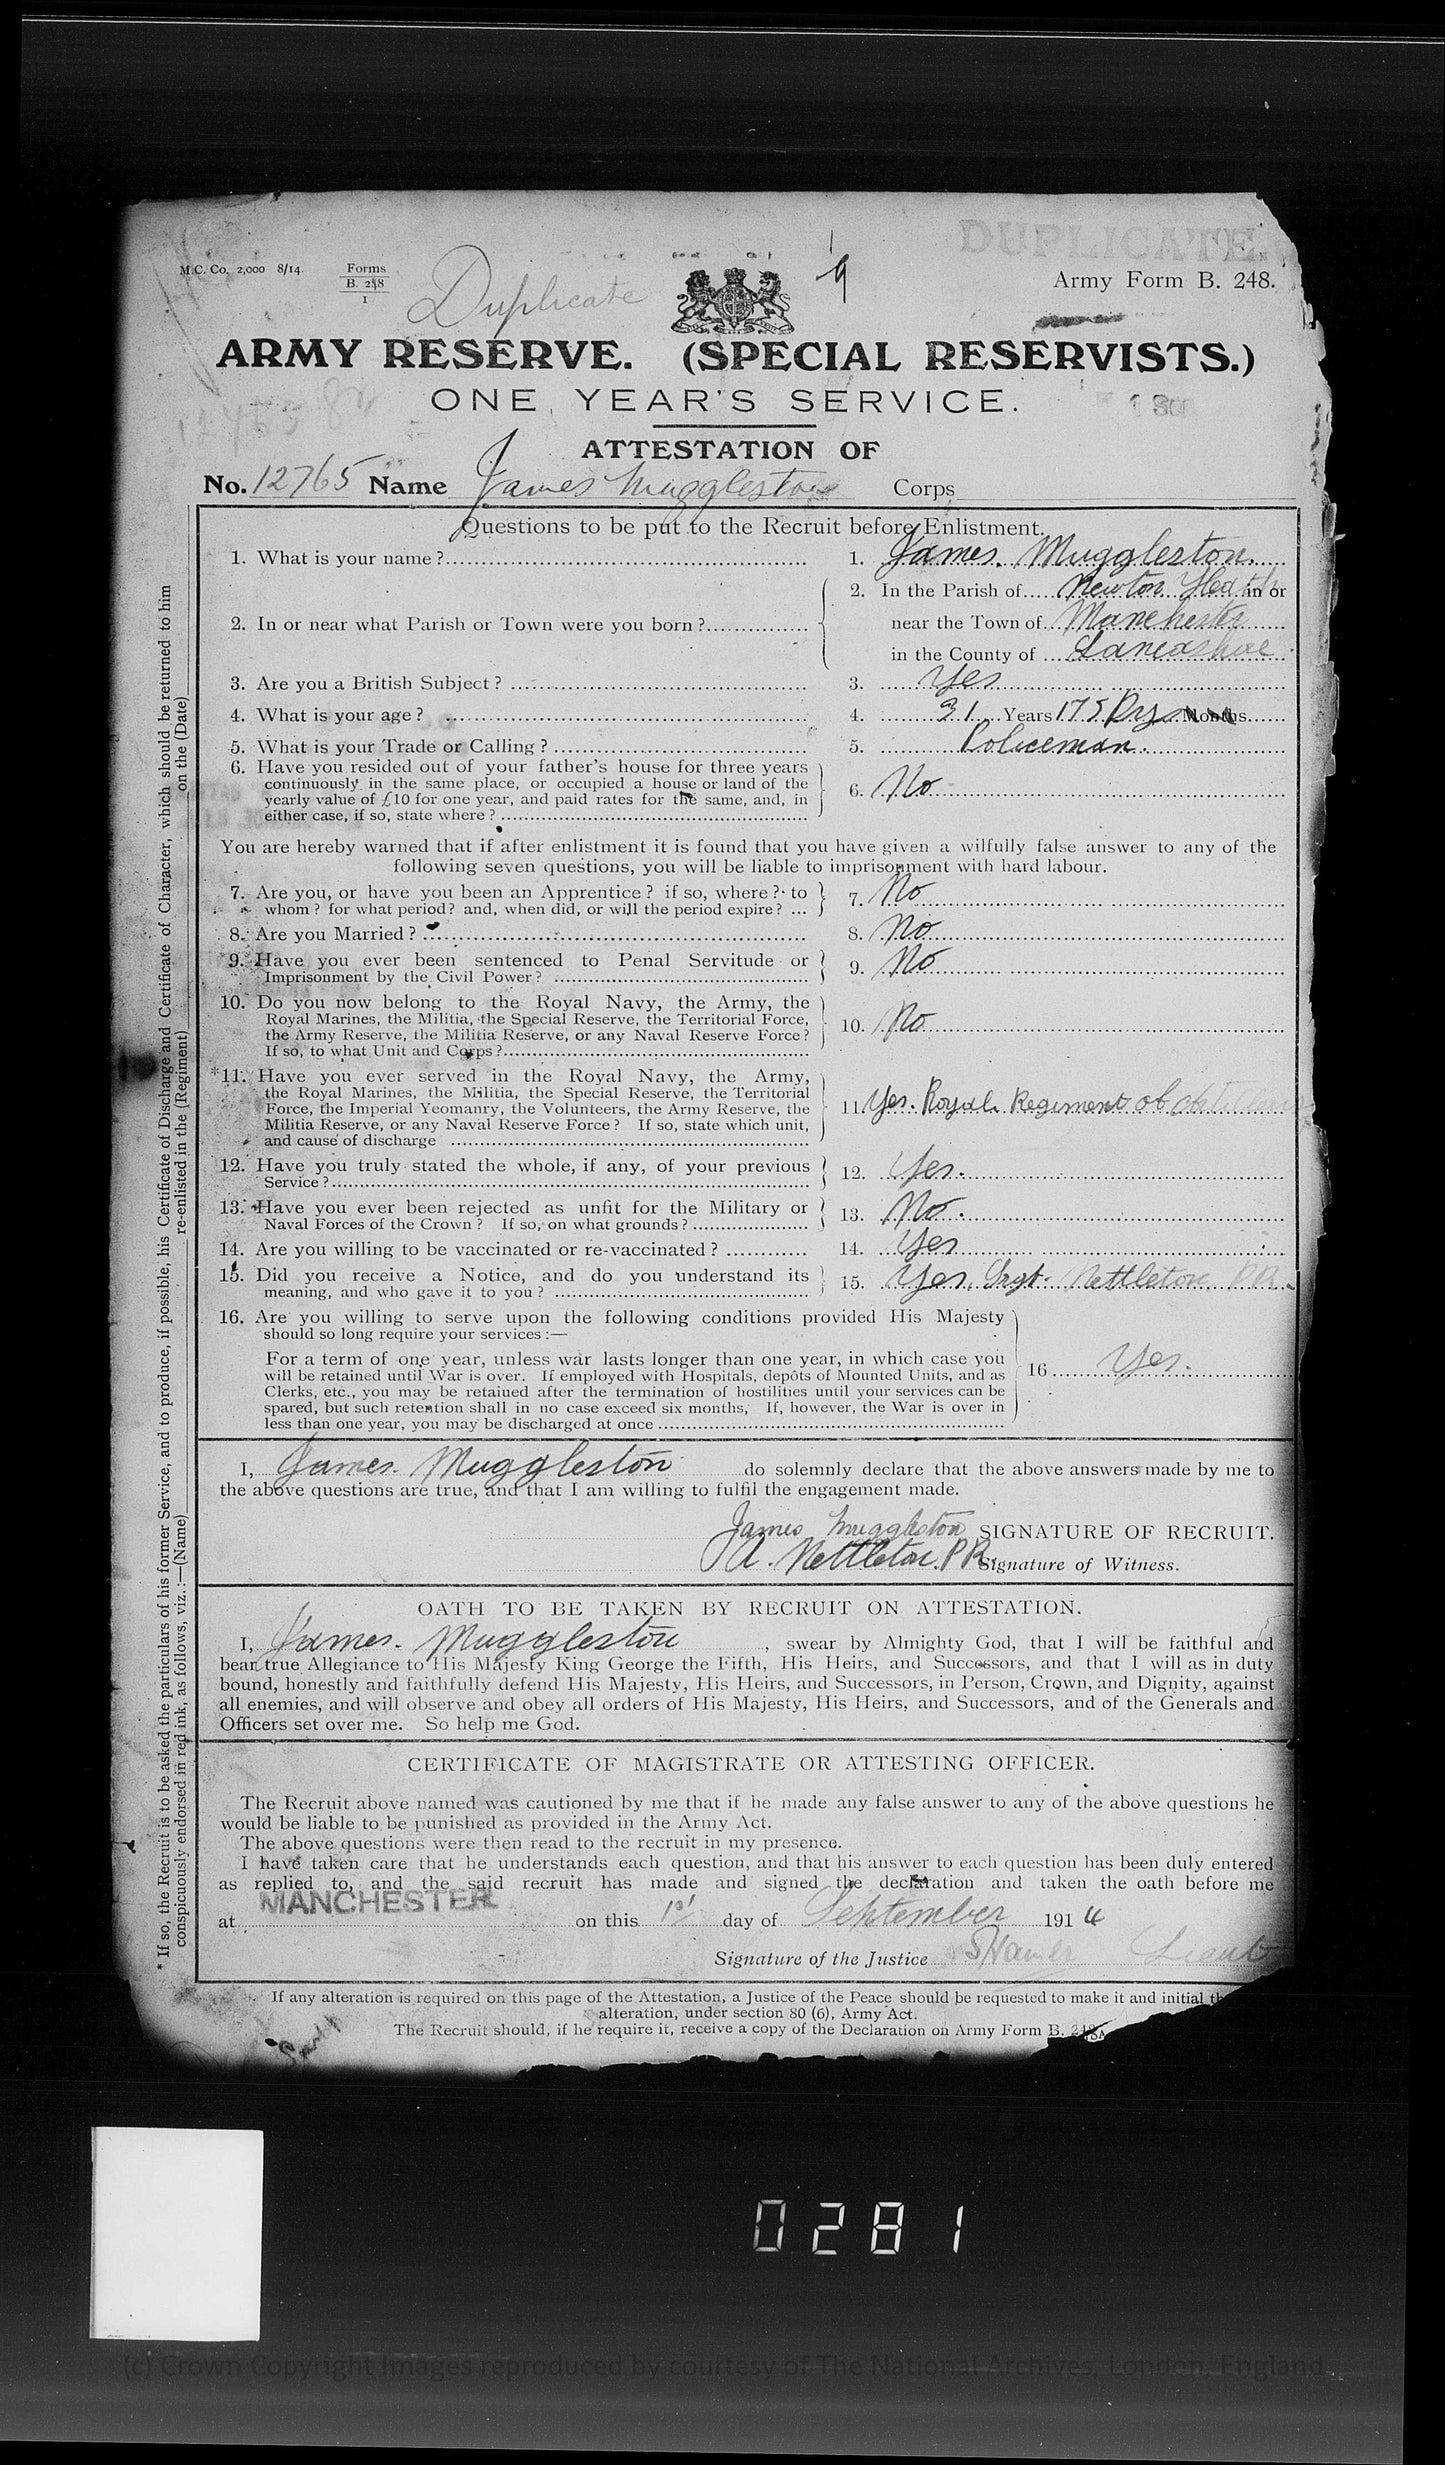 DUPLICATE.
M.C. Co. 2,000 8/14. Forms B. 248 1
Duplicate
9
Army Form B. 248.
ARMY RESERVE. (SPECIAL RESERVISTS.)
ONE YEAR'S SERVICE.
ATTESTATION OF
No. 12765 Name James Muggleston Corps
Questions to be put to the Recruit before Enlistment.
1. What is your name? 1. James. Muggleston.
2. In or near what Parish or Town were you born? 2. In the Parish of Newton Heath in or
near the Town of Manchester
in the County of Lancashire
3. Are you a British Subject? 3. Yes
4. What is your age? 4. 31 Years 175 Dys Months
5. What is your Trade or Calling? 5. Policeman.
6. Have you resided out of your father's house for three years
continuously in the same place, or occupied a house or land of the
yearly value of £10 for one year, and paid rates for the same, and, in
either case, if so, state where? 6. No
You are hereby warned that if after enlistment it is found that you have given a wilfully false answer to any of the
following seven questions, you will be liable to imprisonment with hard labour.
7. Are you, or have you been an Apprentice? if so, where? to
whom? for what period? and, when did, or will the period expire? ... 7. No
8. Are you Married? 8. No
9. Have you ever been sentenced to Penal Servitude or
Imprisonment by the Civil Power? 9. No
10. Do you now belong to the Royal Navy, the Army, the
Royal Marines, the Militia, the Special Reserve, the Territorial Force,
the Army Reserve, the Militia Reserve, or any Naval Reserve Force?
If so, to what Unit and Corps? 10. No
*11. Have you ever served in the Royal Navy, the Army,
the Royal Marines, the Militia, the Special Reserve, the Territorial
Force, the Imperial Yeomanry, the Volunteers, the Army Reserve, the
Militia Reserve, or any Naval Reserve Force? If so, state which unit,
and cause of discharge 11. Yes. Royal Regiment of
12. Have you truly stated the whole, if any, of your previous
Service? 12. Yes.
13. Have you ever been rejected as unfit for the Military or
Naval Forces of the Crown? If so, on what grounds? 13. No.
14. Are you willing to be vaccinated or re-vaccinated? 14. Yes
15. Did you receive a Notice, and do you understand its
meaning, and who gave it to you? 15. Yes, Srgt. Nettleton. P.R.
16. Are you willing to serve upon the following conditions provided His Majesty
should so long require your services:—
For a term of one year, unless war lasts longer than one year, in which case you
will be retained until War is over. If employed with Hospitals, depôts of Mounted Units, and as
Clerks, etc., you may be retained after the termination of hostilities until your services can be
spared, but such retention shall in no case exceed six months, If, however, the War is over in
less than one year, you may be discharged at once 16 Yes.
I, James. Muggleston do solemnly declare that the above answers made by me to
the above questions are true, and that I am willing to fulfil the engagement made.
James Muggleston SIGNATURE OF RECRUIT.
A. Nettleton. P.R. Signature of Witness.
OATH TO BE TAKEN BY RECRUIT ON ATTESTATION.
I, James. Muggleston, swear by Almighty God, that I will be faithful and
bear true Allegiance to His Majesty King George the Fifth, His Heirs, and Successors, and that I will as in duty
bound, honestly and faithfully defend His Majesty, His Heirs, and Successors, in Person, Crown, and Dignity, against
all enemies, and will observe and obey all orders of His Majesty, His Heirs, and Successors, and of the Generals and
Officers set over me. So help me God.
CERTIFICATE OF MAGISTRATE OR ATTESTING OFFICER.
The Recruit above named was cautioned by me that if he made any false answer to any of the above questions he
would be liable to be punished as provided in the Army Act.
The above questions were then read to the recruit in my presence.
I have taken care that he understands each question, and that his answer to each question has been duly entered
as replied to, and the said recruit has made and signed the declaration and taken the oath before me
at MANCHESTER on this 1st day of September 1914
Signature of the Justice Lieut
If any alteration is required on this page of the Attestation, a Justice of the Peace should be requested to make it and initial
alteration, under section 80 (6), Army Act.
The Recruit should, if he require it, receive a copy of the Declaration on Army Form B. 248A
* If so, the Recruit is to be asked the particulars of his former Service, and to produce, if possible, his Certificate of Discharge and Certificate of Character, which should be returned to him
conspicuously endorsed in red ink, as follows, viz.:—(Name) re-enlisted in the (Regiment) on the (Date)
0281
(c) Crown Copyright Images reproduced by courtesy of The National Archives, London, England.